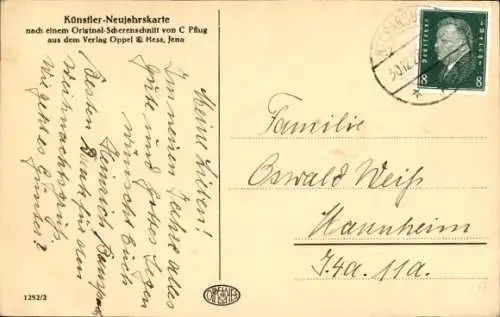 Künstler-Neujahrskarte
nach einem Original-Scherenschnitt von C Pflug
aus dem Verlag Oppel & Hess, Jena
Meine Lieben!
Im neuen Jahre alles
Gute und Gottes Segen
wünscht Euch
Heinrich
Besten Dank für den
Weihnachtsgruß
Wie geht es Günter?
1292/2
Deutsches Reich
8 8
30.12.
Familie
Oswald Weiß
Mannheim
J.4a. 11a.